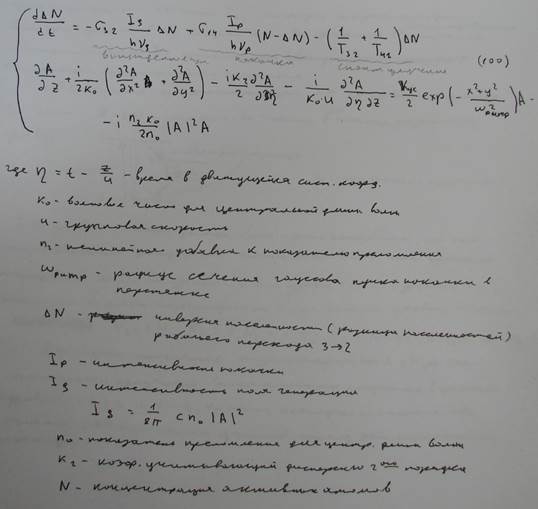 dΔN/dt = -σ₃₂ I_g/hν_g ΔN + σ₁₄ I_p/hν_p (N-ΔN) - (1/T₃₂ + 1/T₄₃)ΔN
(100)
∂A/∂z + i/2k₀ (∂²A/∂x² + ∂²A/∂y²) - ik₂/2 ∂²A/∂η² - i/k₀u ∂²A/∂η∂z = K_ус/2 exp(-x²+y²/w²_pump)A -
- i n₂k₀/2n₀ |A|²A
где η = t - z/u - время в движущейся сист. коорд.
k₀ - волновое число для центральной длины волны
u - групповая скорость
n₂ - нелинейная добавка к показателю преломления
w_pump - радиус сечения гауссова пучка накачки в
перетяжке
ΔN - инверсия населенности (разница населенностей)
рабочего перехода 3→2
I_p - интенсивность накачки
I_g - интенсивность поля генерации
I_g = 1/8π cn₀|A|²
n₀ - показатель преломления для центр. длины волны
k₂ - коэф. учитывающий дисперсию 2ого порядка
N - концентрация активных атомов